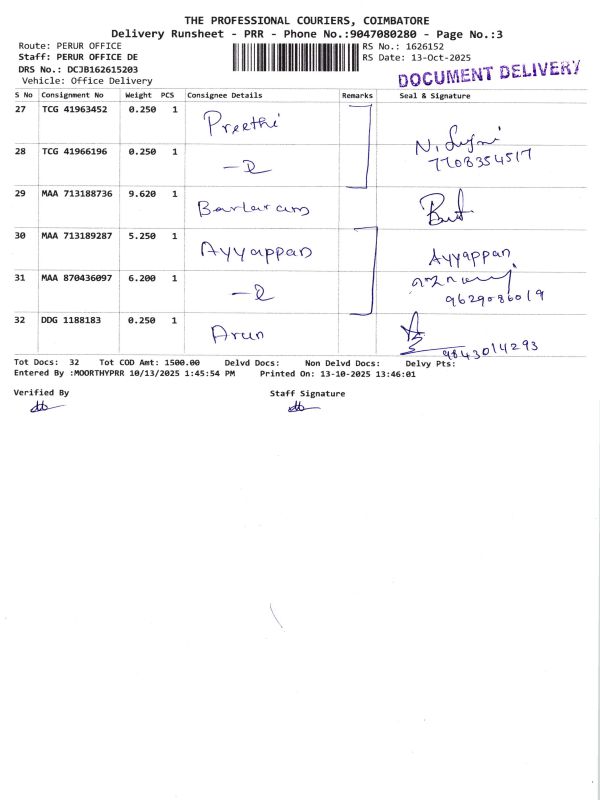 THE PROFESSIONAL COURIERS, COIMBATORE
Delivery Runsheet - PRR - Phone No.:9047080280 - Page No.:3
Route: PERUR OFFICE RS No.: 1626152
Staff: PERUR OFFICE DE RS Date: 13-Oct-2025
DRS No.: DCJB162615203
Vehicle: Office Delivery
DOCUMENT DELIVERY
S No Consignment No Weight PCS Consignee Details Remarks Seal & Signature
27 TCG 41963452 0.250 1 Preethi
28 TCG 41966196 0.250 1 7708354517
29 MAA 713188736 9.620 1
30 MAA 713189287 5.250 1 Ayyappan Ayyappan
31 MAA 870436097 6.200 1 9629086019
32 DDG 1188183 0.250 1 Arun 9843014293
Tot Docs: 32 Tot COD Amt: 1500.00 Delvd Docs: Non Delvd Docs: Delvy Pts:
Entered By :MOORTHYPRR 10/13/2025 1:45:54 PM Printed On: 13-10-2025 13:46:01
Verified By Staff Signature